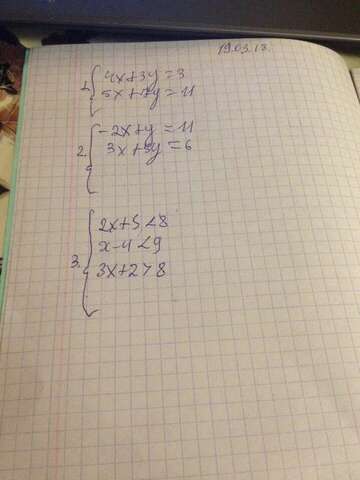 19.03.18.
1. { 4x+3y=3
5x+7y=11
2. { -2x+y=11
3x+5y=6
3. { 2x+5<8
x-4<9
3x+2>8